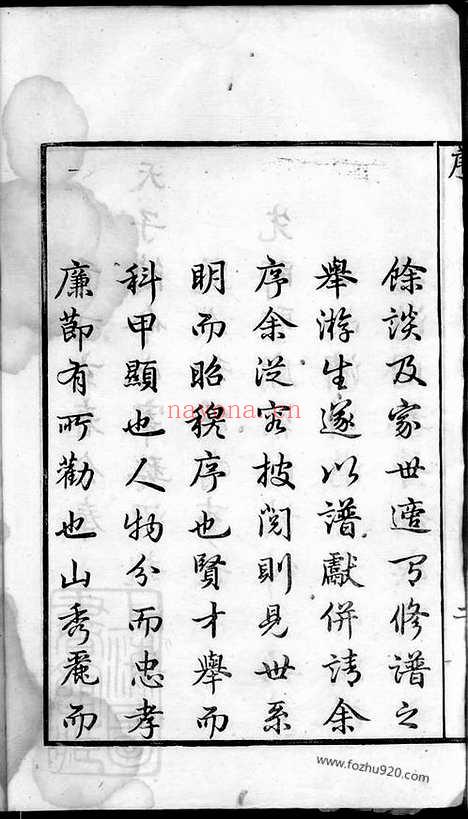 餘談及家世適有修譜之
舉游生遂以譜獻併請余
序余從容披閱則見世系
明而昭穆序也賢才舉而
科甲顯也人物分而忠孝
廉節有所勸也山秀麗而
序
nayona.cn
www.fozhu920.com